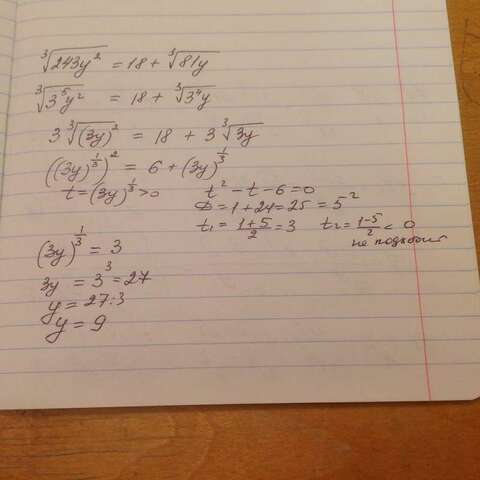 ∛(243y²) = 18 + ∛(81y)
∛(3⁵y²) = 18 + ∛(3⁴y)
3∛((3y)²) = 18 + 3∛(3y)
((3y)^(1/3))² = 6 + (3y)^(1/3)
t = (3y)^(1/3) > 0
t² - t - 6 = 0
D = 1 + 24 = 25 = 5²
t₁ = (1+5)/2 = 3 t₂ = (1-5)/2 < 0
не подходит
(3y)^(1/3) = 3
3y = 3³ = 27
y = 27:3
y = 9